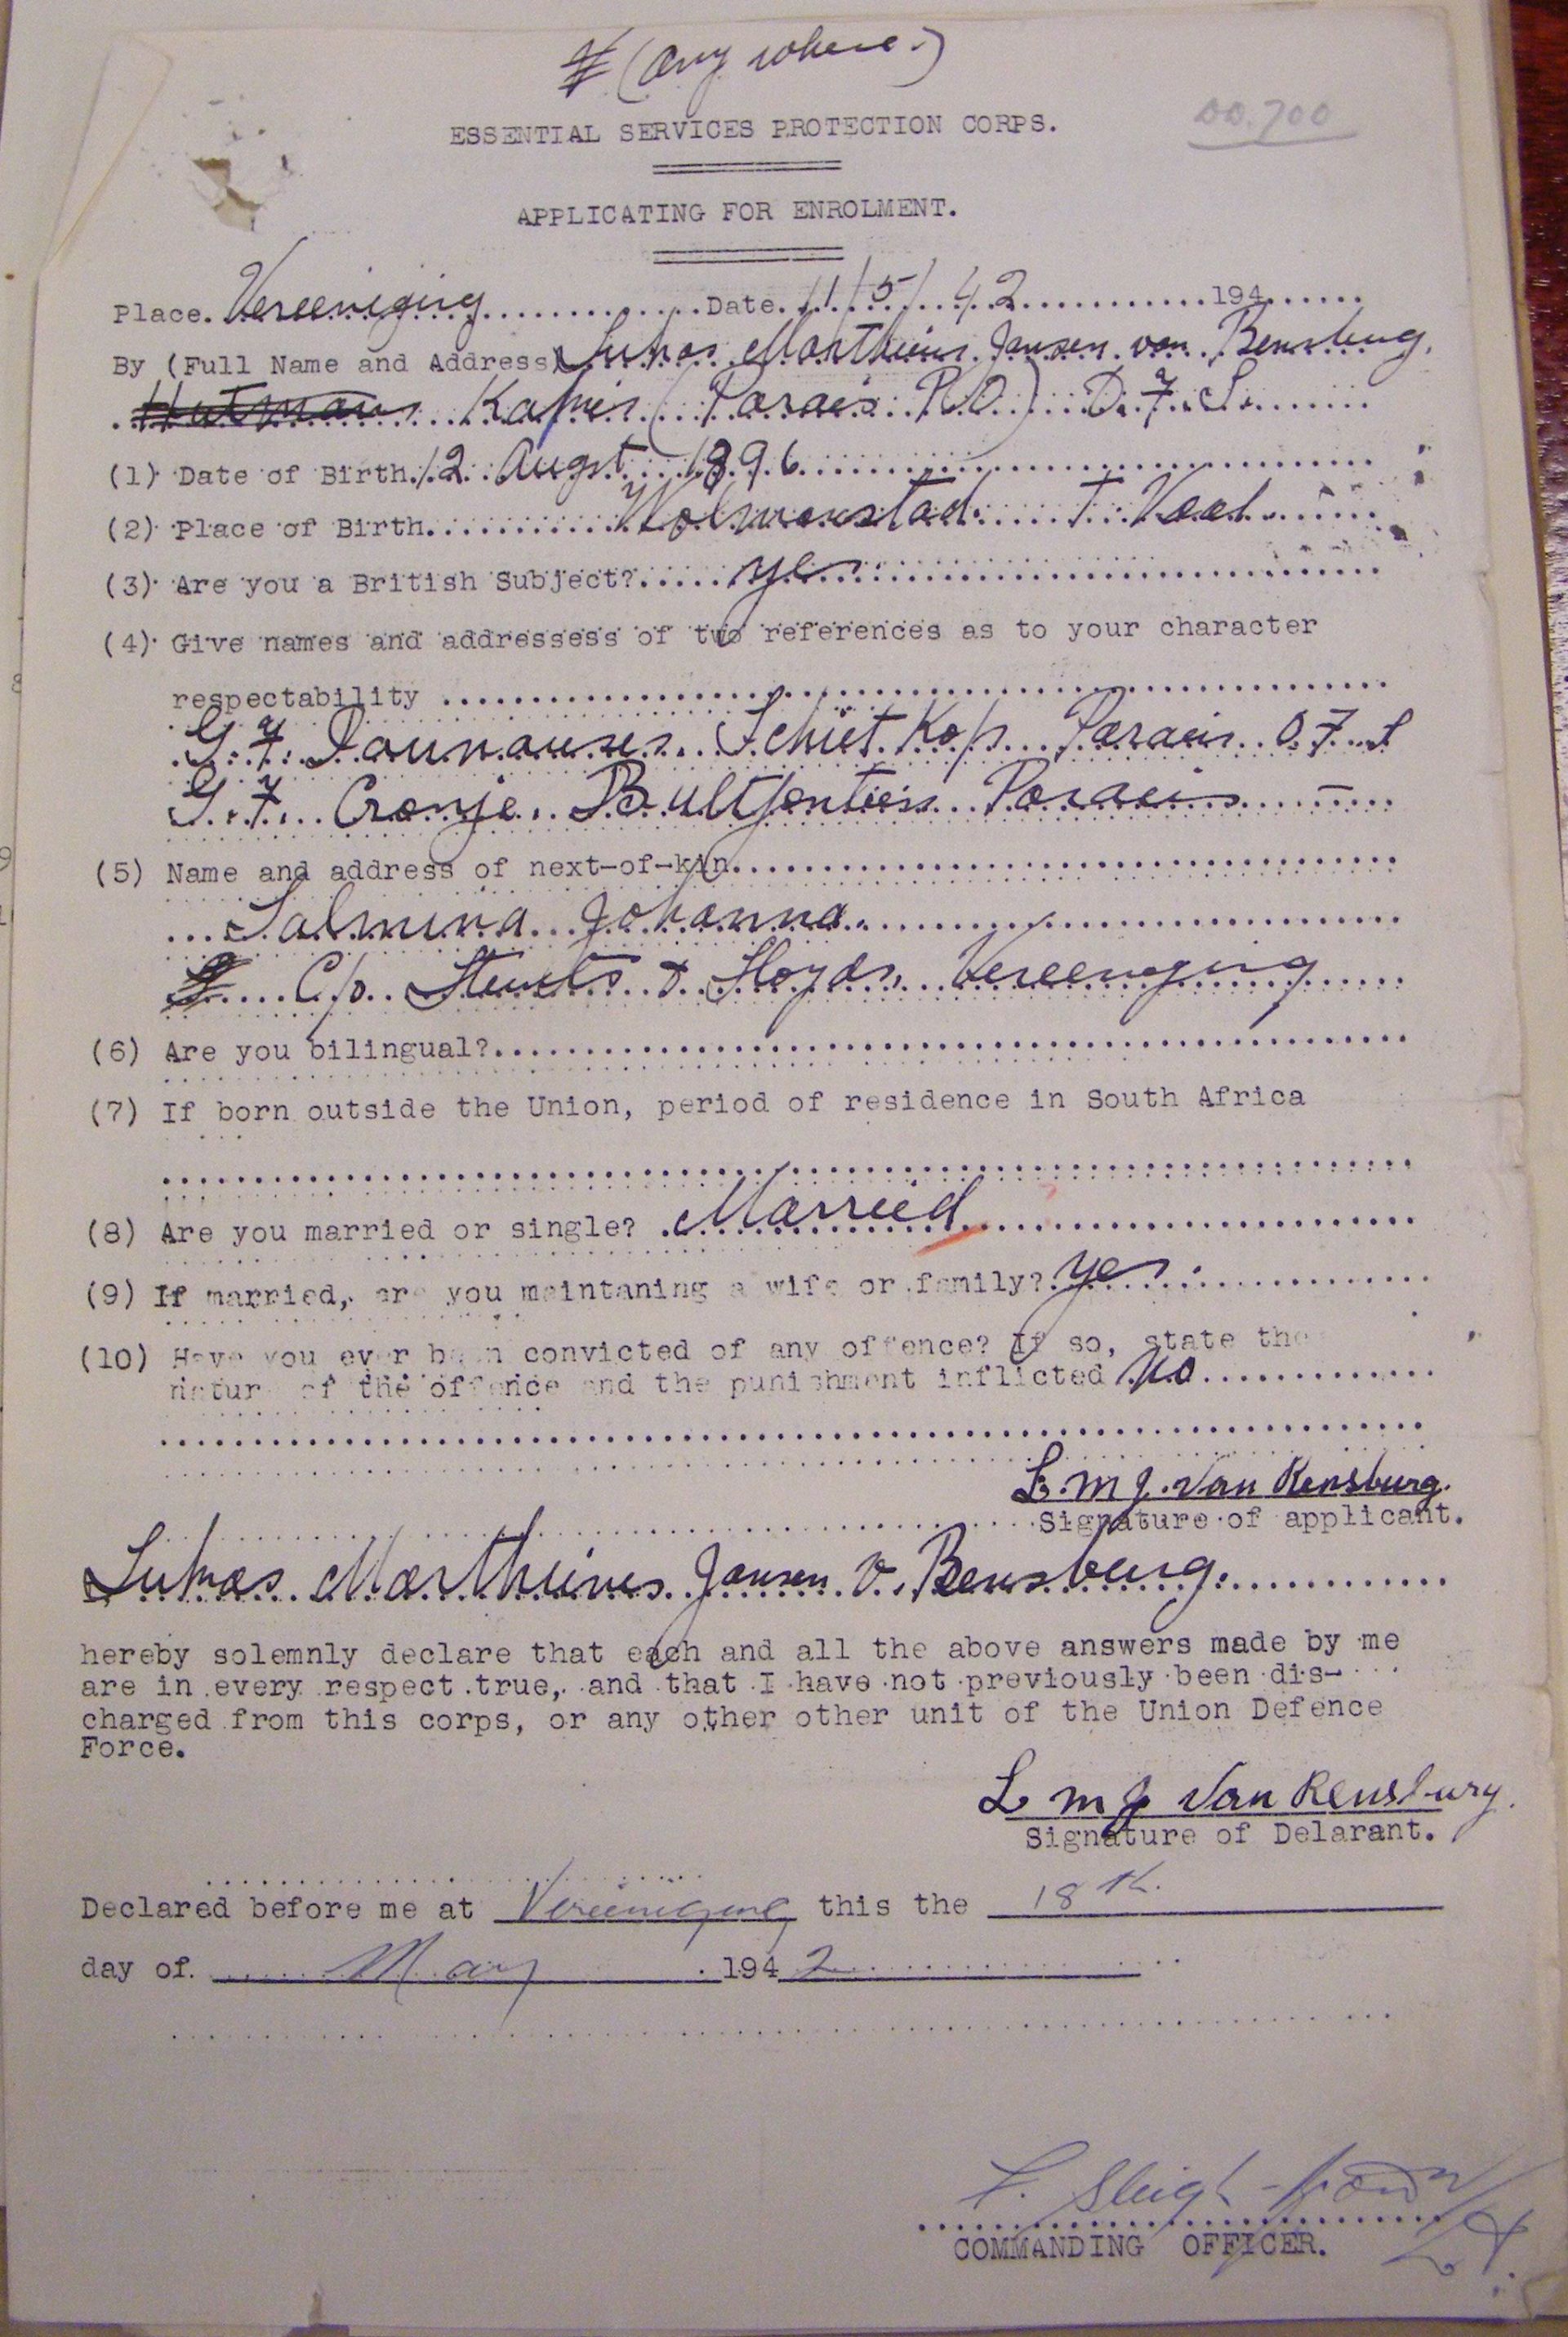 (any where.)
00.700
ESSENTIAL SERVICES PROTECTION CORPS.
APPLICATING FOR ENROLMENT.
Place. Vereeniging Date. 11/5/42 194
By (Full Name and Address) Lukas Marthinus Jansen van Rensburg.
Kopies (Parais P.O) O.F.S.
(1) Date of Birth. 12 Augst 1896
(2) Place of Birth Wolmaranstad T. Vaal
(3) Are you a British Subject? yes
(4) Give names and addressess of two references as to your character
respectability
G.F. Schiet Kop Parais O.F.S
G.F. Cronje. Bultfontein Parais
(5) Name and address of next-of-kin
Salmina Johanna
C/o. Stewts & Lloyds, Vereeniging
(6) Are you bilingual?
(7) If born outside the Union, period of residence in South Africa
(8) Are you married or single? Married
(9) If married, are you maintaning a wife or family? yes.
(10) Have you ever been convicted of any offence? If so, state the
nature of the offence and the punishment inflicted No
L. M J. Van Rensburg.
Signature of applicant.
Lukas Marthinus Jansen V. Rensburg.
hereby solemnly declare that each and all the above answers made by me
are in every respect true, and that I have not previously been dis-
charged from this corps, or any other other unit of the Union Defence
Force.
L M J Van Rensburg.
Signature of Delarant.
Declared before me at Vereeniging this the 18th.
day of May 1942
COMMANDING OFFICER.